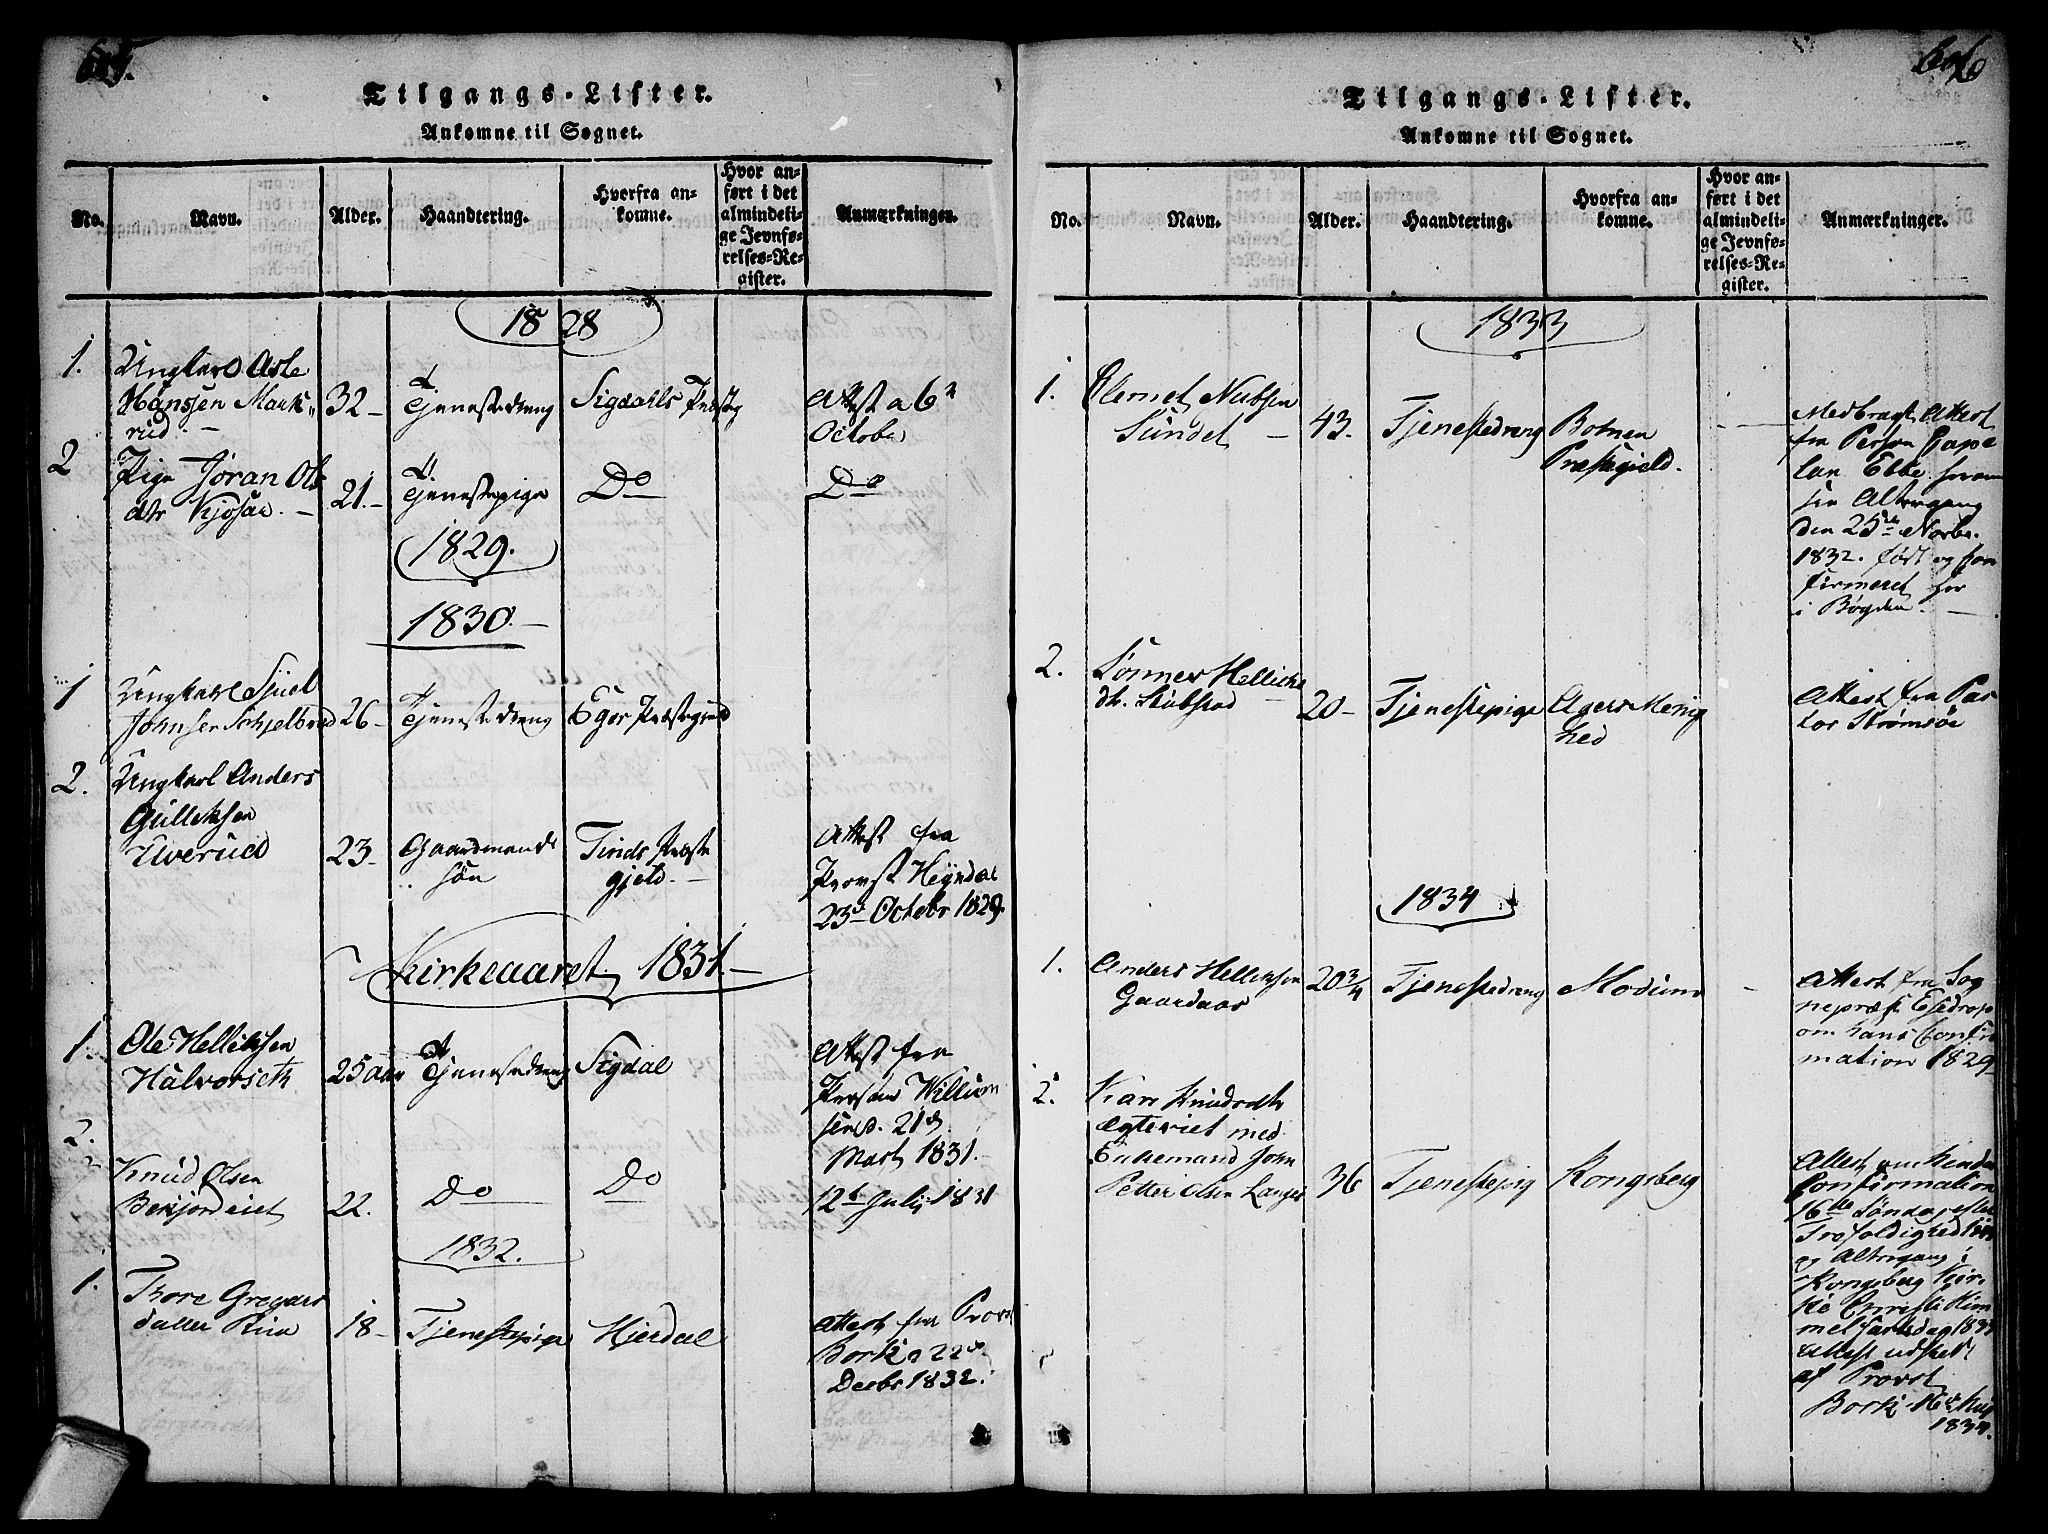 Tilgangs-Lister.
Ankomne til Sognet.
No.
Navn.
Alder.
Haandtering.
Hvorfra an-
komne.
Hvor an-
ført i det
almindeli-
ge Jevnfø-
relses-Re-
gister.
Anmærkninger.
1828
1.
Ungkarl Asle
Hanssen Mørk-
rud.
32-
Tjenestedreng
Sigdahls Præstg
Attest a 6
October
2
Pige Jøran Ols
dtr Kjøsae.
21.-
Tjenestepige
Do
Do
1829.
1830.
1
Ungkarl
Johnsen
26-
Tjenestedreng
Eger Præstegield
2.
Ungkarl Anders
Gulleksen
Uverud
23-
Gaardmands
søn
Tinds Præste
gjeld.
Attest fra
Provst
23d Octobr 1829.
Kirkeaaret 1831.
1.
Ole Helleksen
Halvorseth
25 aar
Tjenestedreng
Sigdal
Attest fra
21d
Mart 1831.
2.
Knud Olsen
Bekjordeiet
22.
Do
Do
12te Julij 1831
1832.
1.
Thore Gregars
datter Ruu
18-
Tjenestepige
Hjerdal
Attest fra Provst
Bork a 22de
Decbr 1832.
606
Tilgangs-Lister.
Ankomne til Sognet.
No.
Navn.
Alder.
Haandtering.
Hvorfra an-
komne.
Hvor an-
ført i det
almindeli-
ge Jevnfø-
relses-Re-
gister.
Anmærkninger.
1833
1.
Clemet Nubsen
Sundet
43.
Tjenestedreng
Botnen
Præstegield.
Medbragt Attest
fra Person Cape
lan Ebbe
sin Altergang
den 25de Novbr.
1832. født og kon
firmeret her
i Bøgden.
2.
Sønnev Hellichs
dtr. Stubsrud
20-
Tjenestepige
Agers Menig
hed
Attest fra Pas
tor Strømsøe
1834
1.
Anders Helleksen
Gaardaas
20 3/4
Tjenestedreng
Modum
Attest fra Sog
nepræst
om hans Confir
mation 1829
2.
Kari Knudsdtr
egteviet med
Enkemand John
Petter Olsen Langes
36
Tjenestepig
Kongsberg
Attest om hendes
Confirmation
16de Søndag efter
Trefoldighed
og Altergang i
Kongsberg Kir-
ke Christi Him
melfartsdag 1833
Attest udstedt
af Provst
Bork 16de Aug
1834.